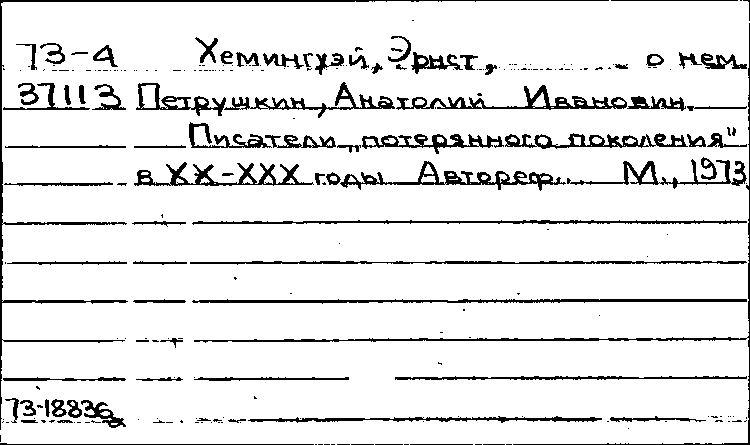 73-4 Хемингуэй, Эрнст, о нем.
37113 Петрушкин, Анатолий Иванович.
Писатели „потерянного поколения"
в XX-XXX годы Автореф... М., 1973
73-18836а